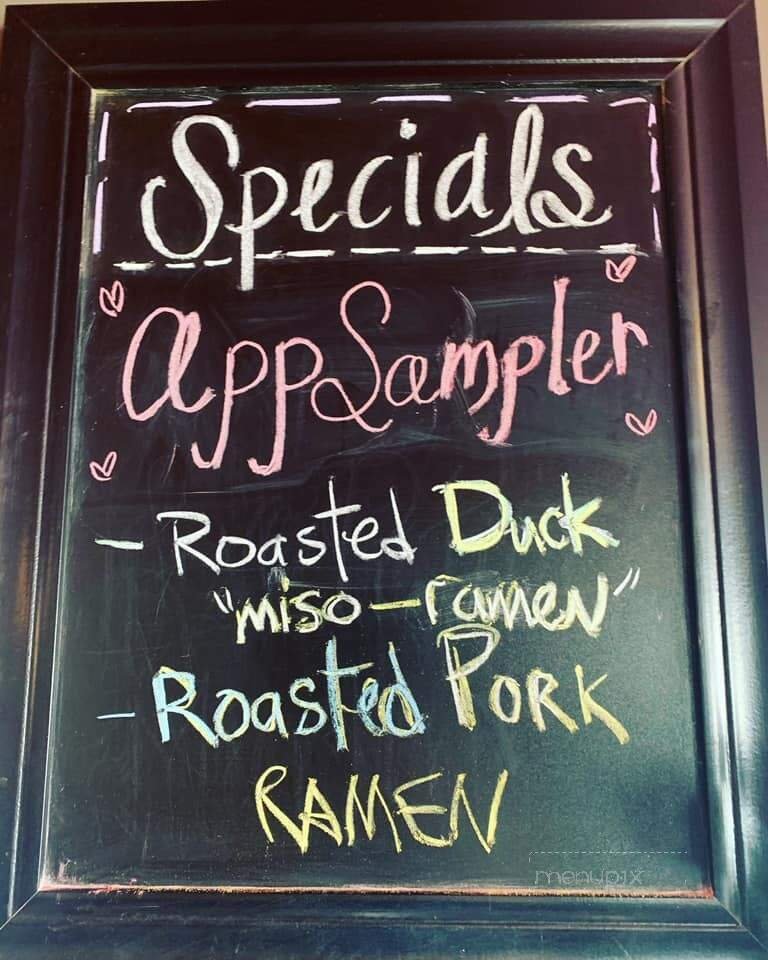 Specials
App Sampler
- Roasted Duck
"miso-ramen"
- Roasted Pork
RAMEN
menupix